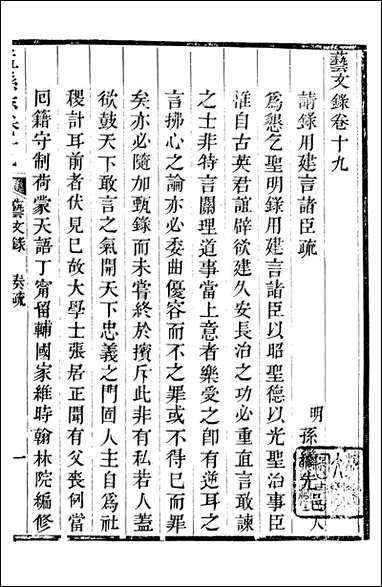 藝文錄卷十九
請錄用建言諸臣疏
明 孫 先 邑人
為懇乞聖明錄用建言諸臣以昭聖德以光聖治事臣
淮自古英君誼辟欲建久安長治之功必重直言敢諫
之士非特言關理道事當上意者樂愛之卽有逆耳之
言拂心之論亦必委曲優容而不之罪或不得已而罪
矣亦必隨加甄錄而未嘗終於擯斥此非有私若人蓋
欲鼓天下敢言之氣開天下忠義之門固人主自為社
稷計耳前者伏見已故大學士張居正聞有父喪例當
回籍守制荷蒙天語丁甯留輔國家維時翰林院編修
藝文錄 奏疏 一